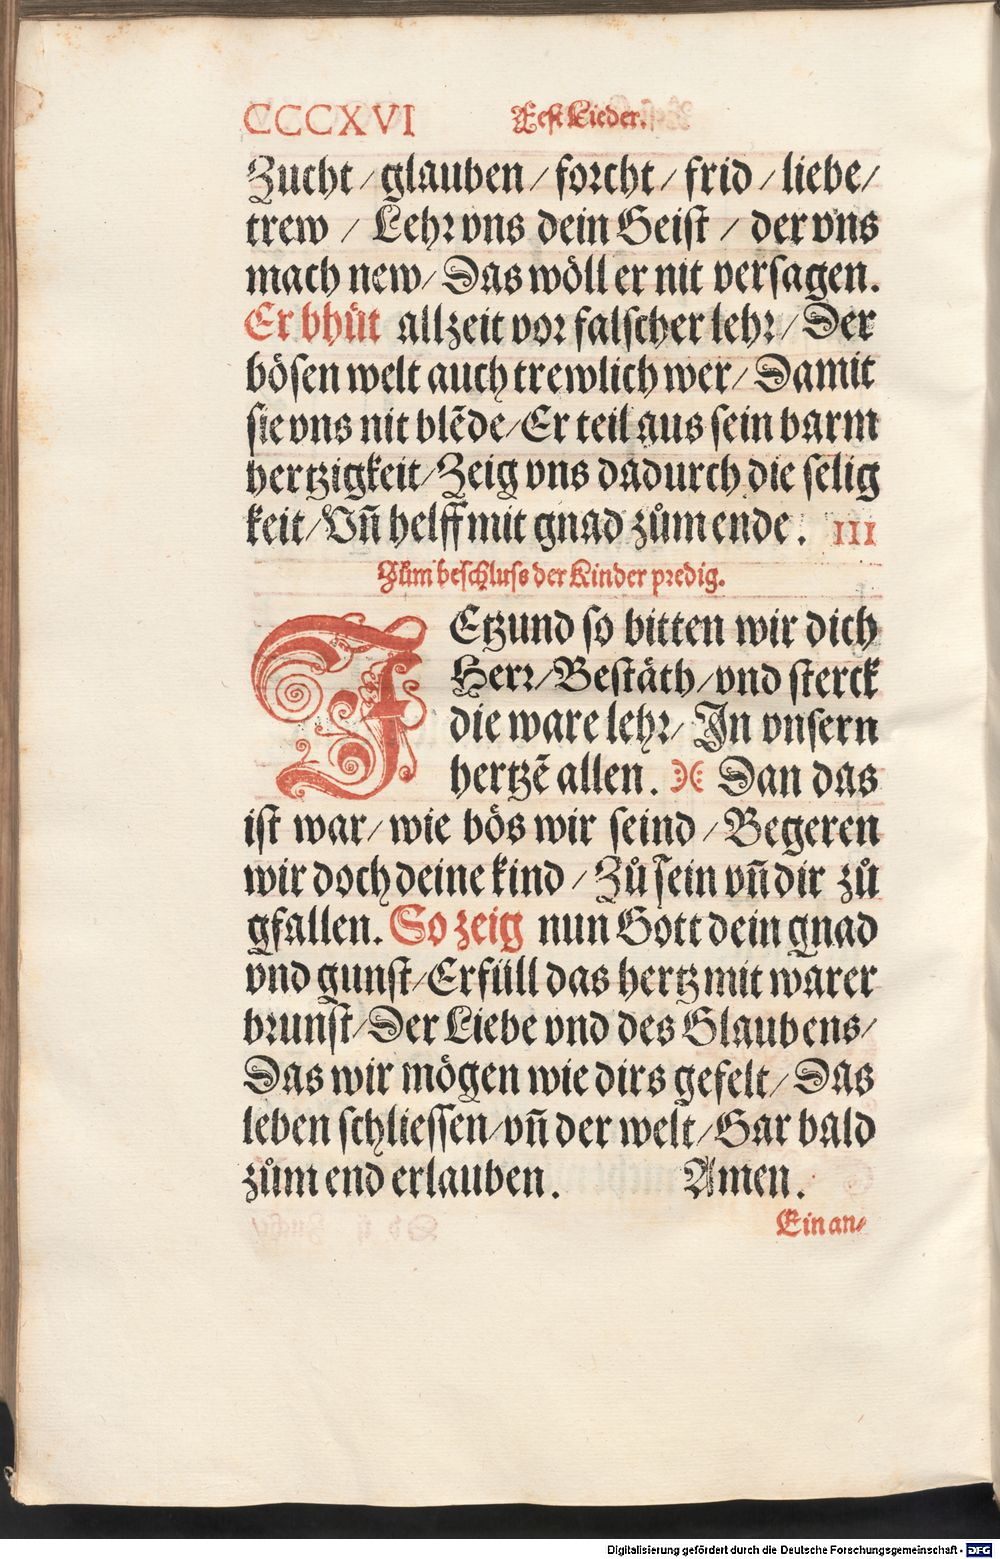 CCCXVI Fest Lieder.
Zucht / glauben / forcht / frid / liebe /
trew / Lehr vns dein Geist / der vns
mach new / Das wöll er nit versagen.
Er bhüt allzeit vor falscher lehr / Der
bösen welt auch trewlich wer / Damit
sie vns nit blẽde / Er teil aus sein barm
hertzigkeit / Zeig vns dadurch die selig
keit / Vñ helff mit gnad zům ende. III
Zům beschluss der Kinder predig.
IEtzund so bitten wir dich
Herr / Bestäth / vnd sterck
die ware lehr / In vnsern
hertzẽ allen. Dan das
ist war / wie bös wir seind / Begeren
wir doch deine kind / Zů sein vñ dir zů
gfallen. So zeig nun Gott dein gnad
vnd gunst / Erfüll das hertz mit warer
brunst / Der Liebe vnd des Glaubens /
Das wir mögen wie dirs gefelt / Das
leben schliessen / vñ der welt / Gar bald
zům end erlauben. Amen.
Ein an⸗
Digitalisierung gefördert durch die Deutsche Forschungsgemeinschaft - DFG